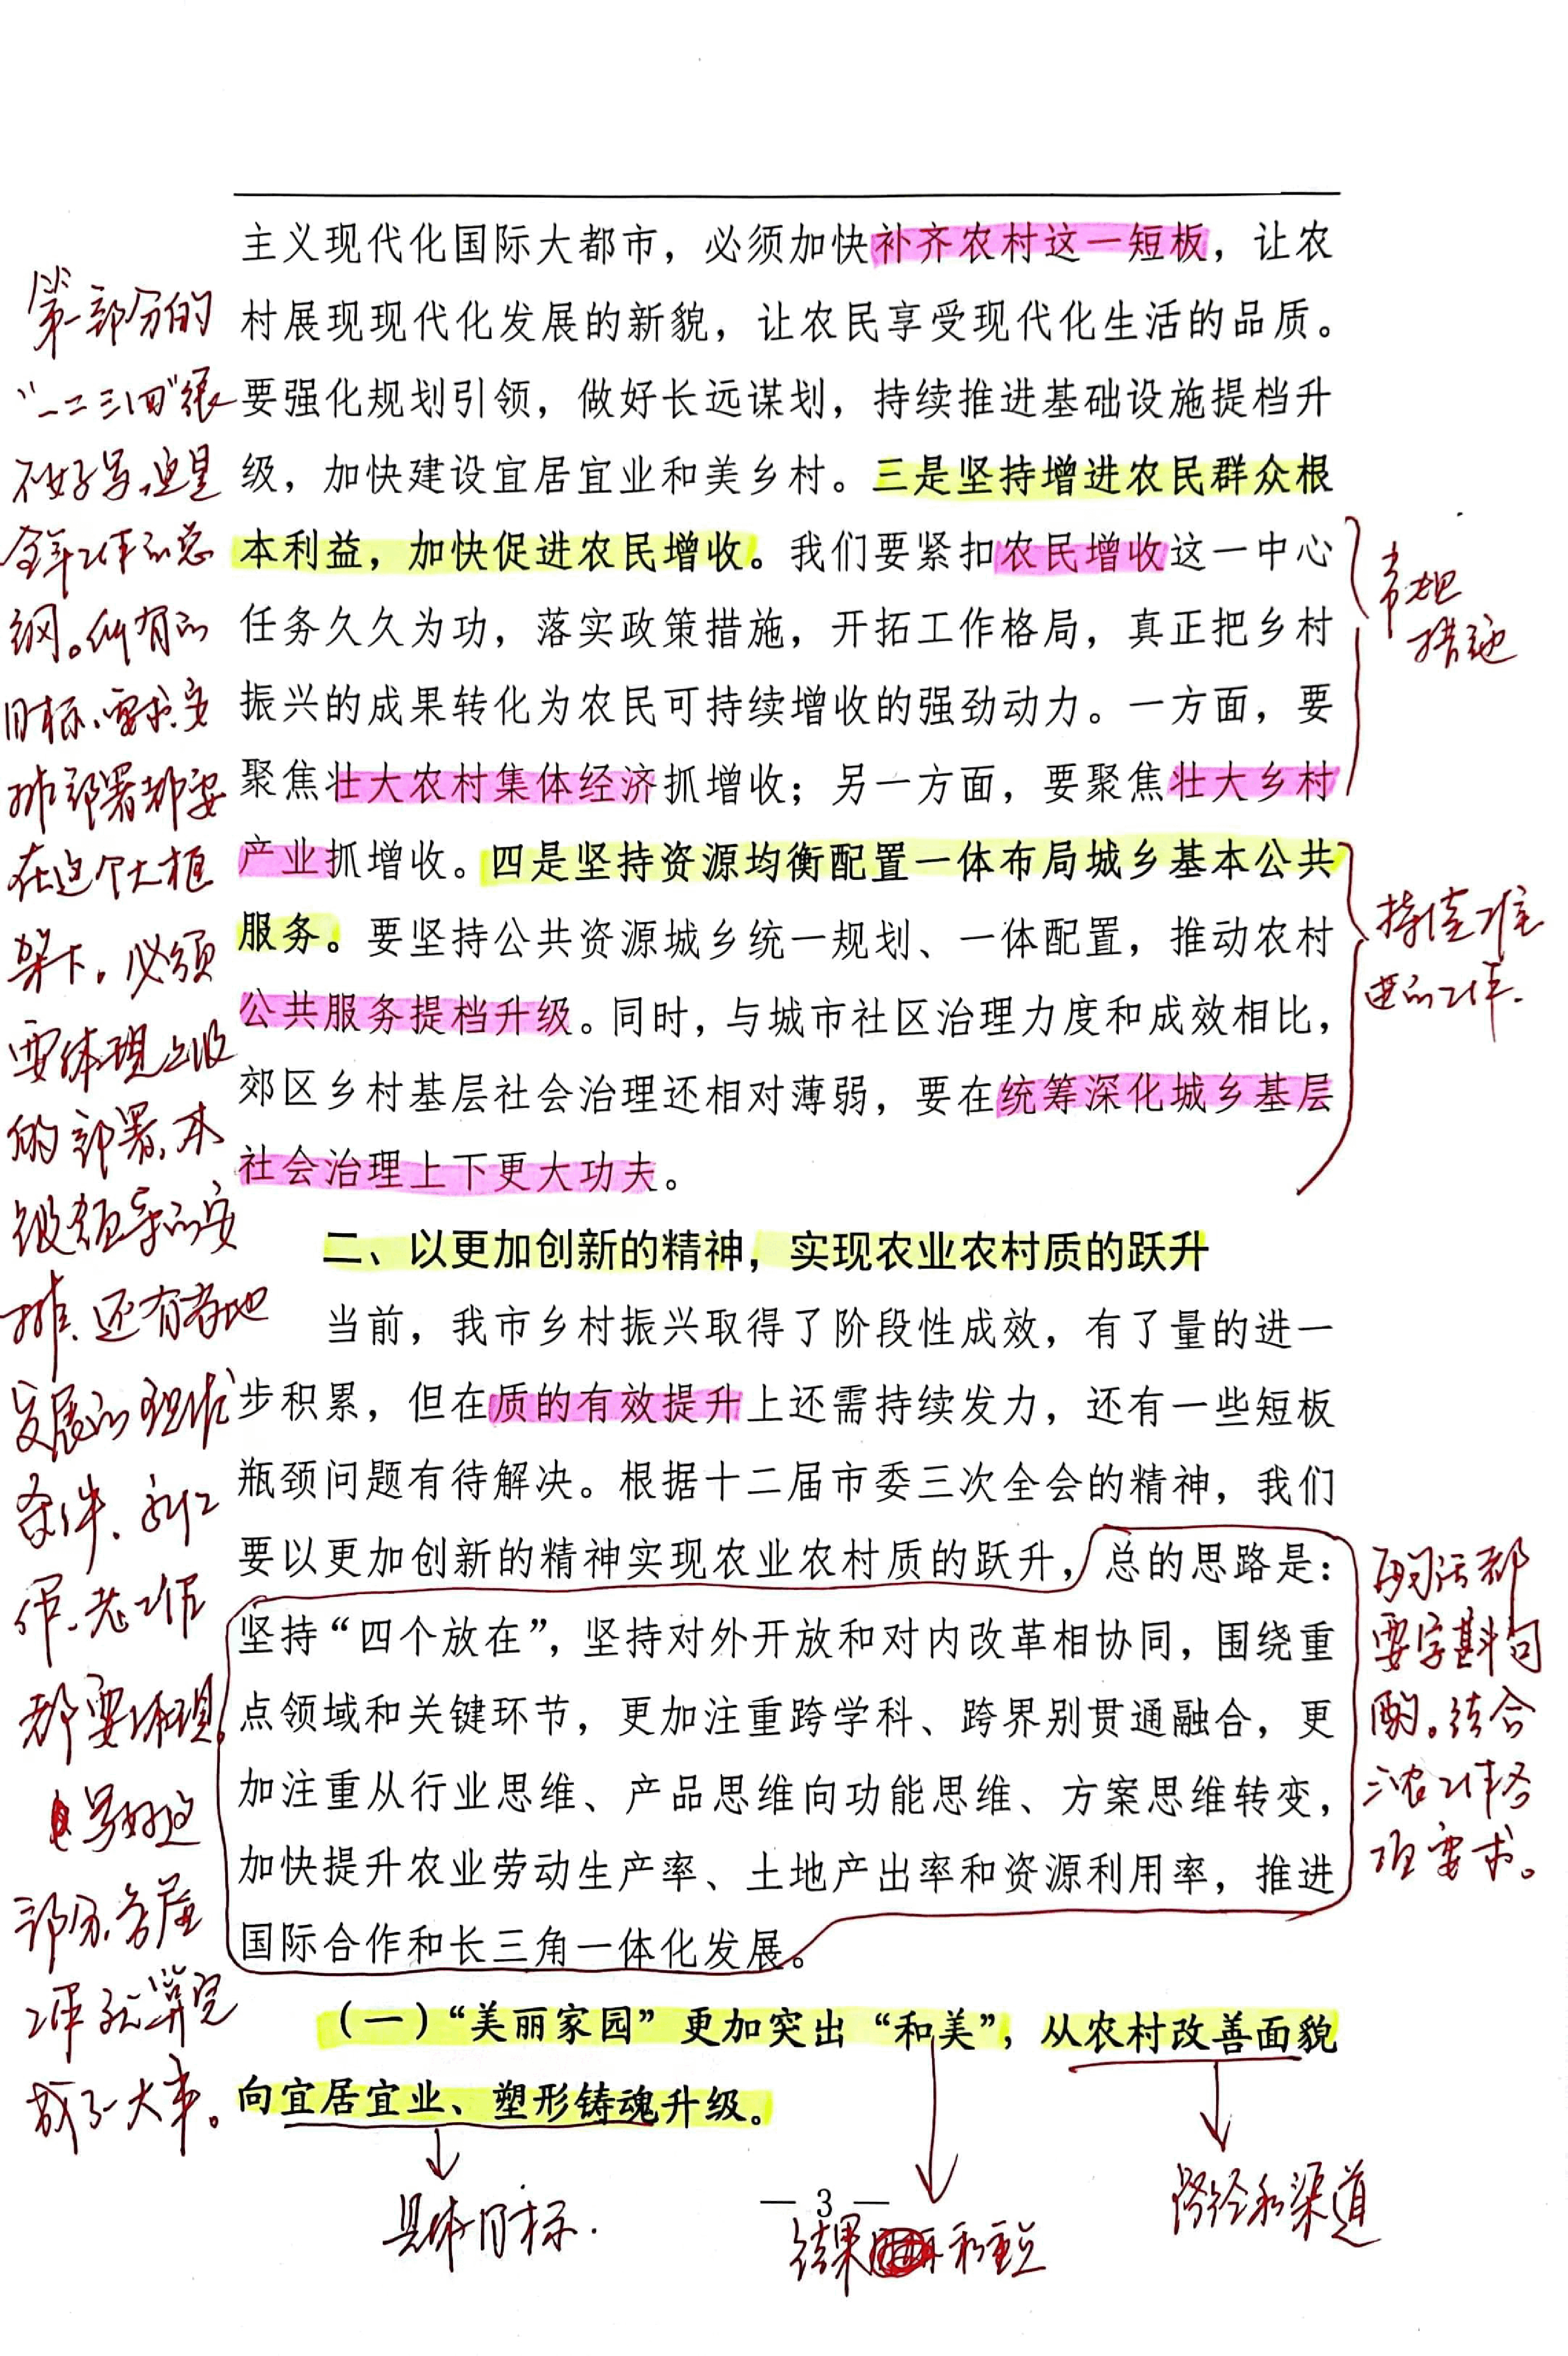 主义现代化国际大都市，必须加快补齐农村这一短板，让农
村展现现代化发展的新貌，让农民享受现代化生活的品质。
要强化规划引领，做好长远谋划，持续推进基础设施提档升
级，加快建设宜居宜业和美乡村。三是坚持增进农民群众根
本利益，加快促进农民增收。我们要紧扣农民增收这一中心
任务久久为功，落实政策措施，开拓工作格局，真正把乡村
振兴的成果转化为农民可持续增收的强劲动力。一方面，要
聚焦壮大农村集体经济抓增收；另一方面，要聚焦壮大乡村
产业抓增收。四是坚持资源均衡配置一体布局城乡基本公共
服务。要坚持公共资源城乡统一规划、一体配置，推动农村
公共服务提档升级。同时，与城市社区治理力度和成效相比，
郊区乡村基层社会治理还相对薄弱，要在统筹深化城乡基层
社会治理上下更大功夫。
二、以更加创新的精神，实现农业农村质的跃升
当前，我市乡村振兴取得了阶段性成效，有了量的进一
步积累，但在质的有效提升上还需持续发力，还有一些短板
瓶颈问题有待解决。根据十二届市委三次全会的精神，我们
要以更加创新的精神实现农业农村质的跃升，总的思路是：
坚持“四个放在”，坚持对外开放和对内改革相协同，围绕重
点领域和关键环节，更加注重跨学科、跨界别贯通融合，更
加注重从行业思维、产品思维向功能思维、方案思维转变，
加快提升农业劳动生产率、土地产出率和资源利用率，推进
国际合作和长三角一体化发展。
（一）“美丽家园”更加突出“和美”，从农村改善面貌
向宜居宜业、塑形铸魂升级。
— 3 —
第一部分的
“一二三四”很
不好写，这是
全年工作的总
纲。所有的
目标、要求、安
排部署都要
在这个大框
架下。必须
要体现上级
的部署、本
级领导的安
排、还有各地
发展的现状
条件、新工
作、老工作
都要体现。
写好这
部分，各座
工作就算完
成了一大半。
常规
措施
持续推
进的工作.
每句话都
要字斟句
酌。结合
三农工作各
项要求。
具体目标.
结果和重点
路径和渠道